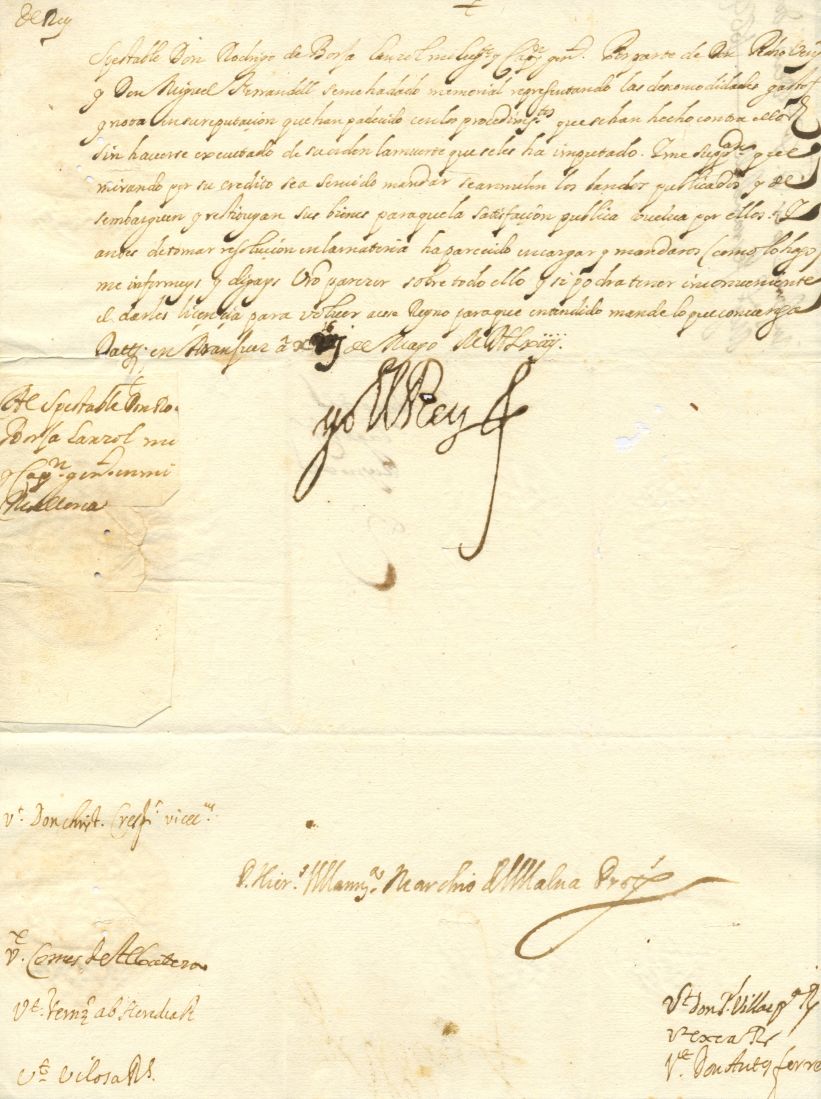 el Rey
Spectable Don Rodrigo de Borja Lanzol mi lugte y Capn genl. Por parte de Don Pedro
y Don Miguel Ferrandell se me ha dado memorial representando las descomodidades gastos
y nota en su reputaçion que han padecido con los procedimtos que se han hecho contra ellos
sin haverse executado de su orden la muerte que se les ha imputado. Y me supcan que
mirando por su credito sea servido mandar se anulen los bandos publicados y de
sembarguen y restituyan sus bienes para que la satisfaçion publica vuelva por ellos. Y
antes de tomar resoluçion en la materia ha parecido encargar y mandaros (como lo hago)
me informeys y digays vro parezer sobre todo ello y si podra tener inconveniente
el darles licençia para volver a ese Reyno para que entendido mande lo que convenga
Datt. en Aranjuez à de Mayo
yo el Rey
Al Spectable Don Ro.
Borja Lanzol mi
y Capn genl. en mi
Mallorca
Vt. Don Christ. Crespi vicecan.
Marchio
Vt. Comes de Albatera
Vt. ab Heredia R
Vt. Vilosa R.
Vt Don P. Villacpa R
Vt exea R
Vt. Don Antos ferre